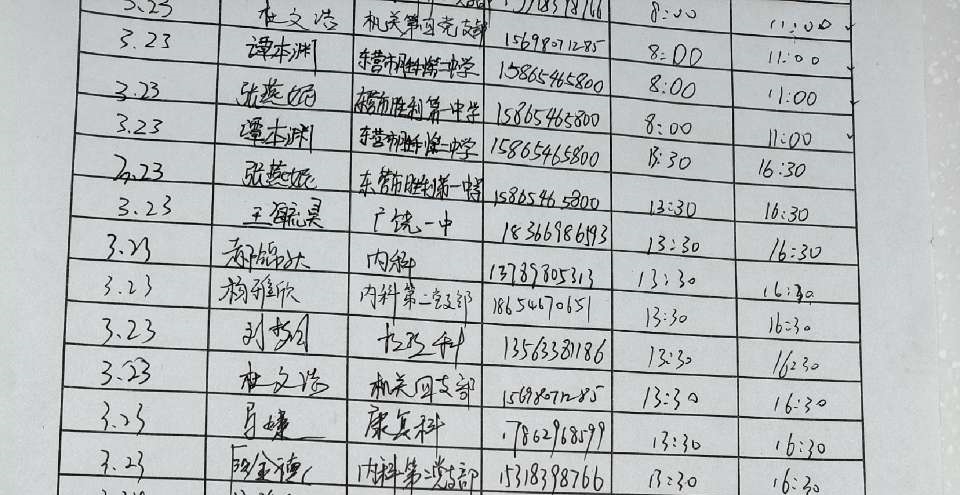 3.23 杜文浩 机关第四党支部 15698071285 8:00 11:00
3.23 谭本渊 东营市胜利第一中学 15865465800 8:00 11:00
3.23 张燕妮 东营市胜利第一中学 15865465800 8:00 11:00
3.23 谭本渊 东营市胜利第一中学 15865465800 13:30 16:30
3.23 张燕妮 东营市胜利第一中学 15865465800 13:30 16:30
3.23 王 昊 广饶一中 18366986593 13:30 16:30
3.23 内科 13789805313 13:30 16:30
3.23 杨雅欣 内科第二党支部 18654670651 13:30 16:30
3.23 刘 科 13563381186 13:30 16:30
3.23 杜文浩 机关四支部 15698071285 13:30 16:30
3.23 康复科 7862968599 13:30 16:30
3.23 内科第二党支部 15318398766 13:30 16:30